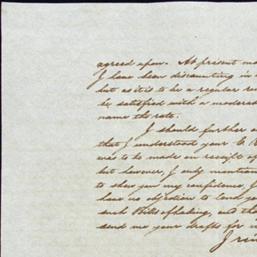 agreed upon. At present
I have been discounting in
but as it is to be a regular
be satisfied with a moderate
name the rate.
I should further
that I understood your
was to be made on receipt of
but however, I only mention
to show you my confidence, I
have no objection to send you
such Bills of lading, and
send me your drafts for
I